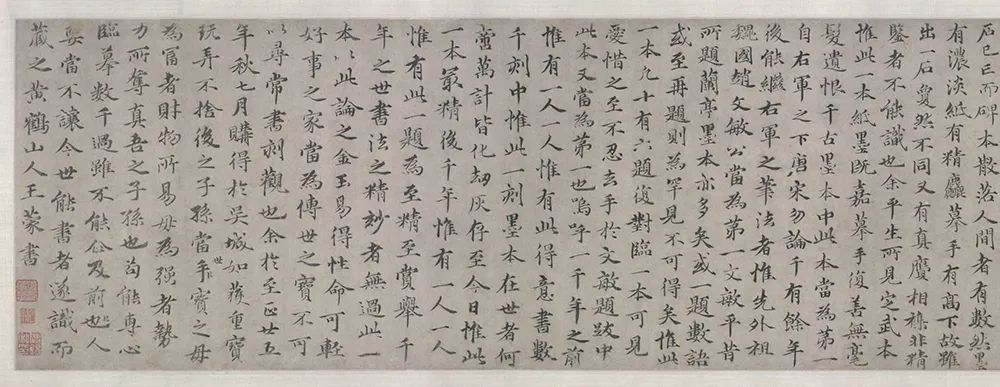 石已亡而碑本散落人間者有數然墨
有濃淡紙有精麤摹手有高下故雖
出一石夐然不同又有真贋相襍非精
鑒者不能識也余平生所見定武本
惟此一本紙墨既嘉摹手復善無毫
髮遺恨千古墨本中此本當為第一
自右軍之下唐宋勿論千有餘年
後能繼右軍之筆法者惟先外祖
魏國趙文敏公當為第一文敏平昔
所題蘭亭墨本亦多矣或一題數語
或至再題則為罕見不可得矣惟此
一本凡十有六題復對臨一本可見
愛惜之至不忍去手於文敏題跋中
此本又當為第一也嗚呼一千年之前
惟有一人一人惟有此得意書數
千刻中惟此一刻墨本在世者何
啻萬計皆化劫灰存至今日惟此
一本最精後千年惟有一人一人
惟有此一題為至精至賞舉千
年之世書法之精妙者無過此一
本以此論之金玉易得性命可輕
好事之家當為傳世之寶不可
以尋常書刻觀也余於至正廿五
年秋七月購得於吳城如獲重寶
玩弄不捨後之子孫當世寶之毋
為富者財物所易毋為强者勢
力所奪真吾之子孫也苟能專心
臨摹數千過雖不能企及前也人
要當不讓今世能書者遂識而
藏之黃鶴山人王蒙書